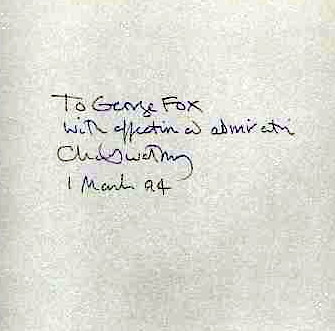 To George Fox
with affection and admiration
1 March 94